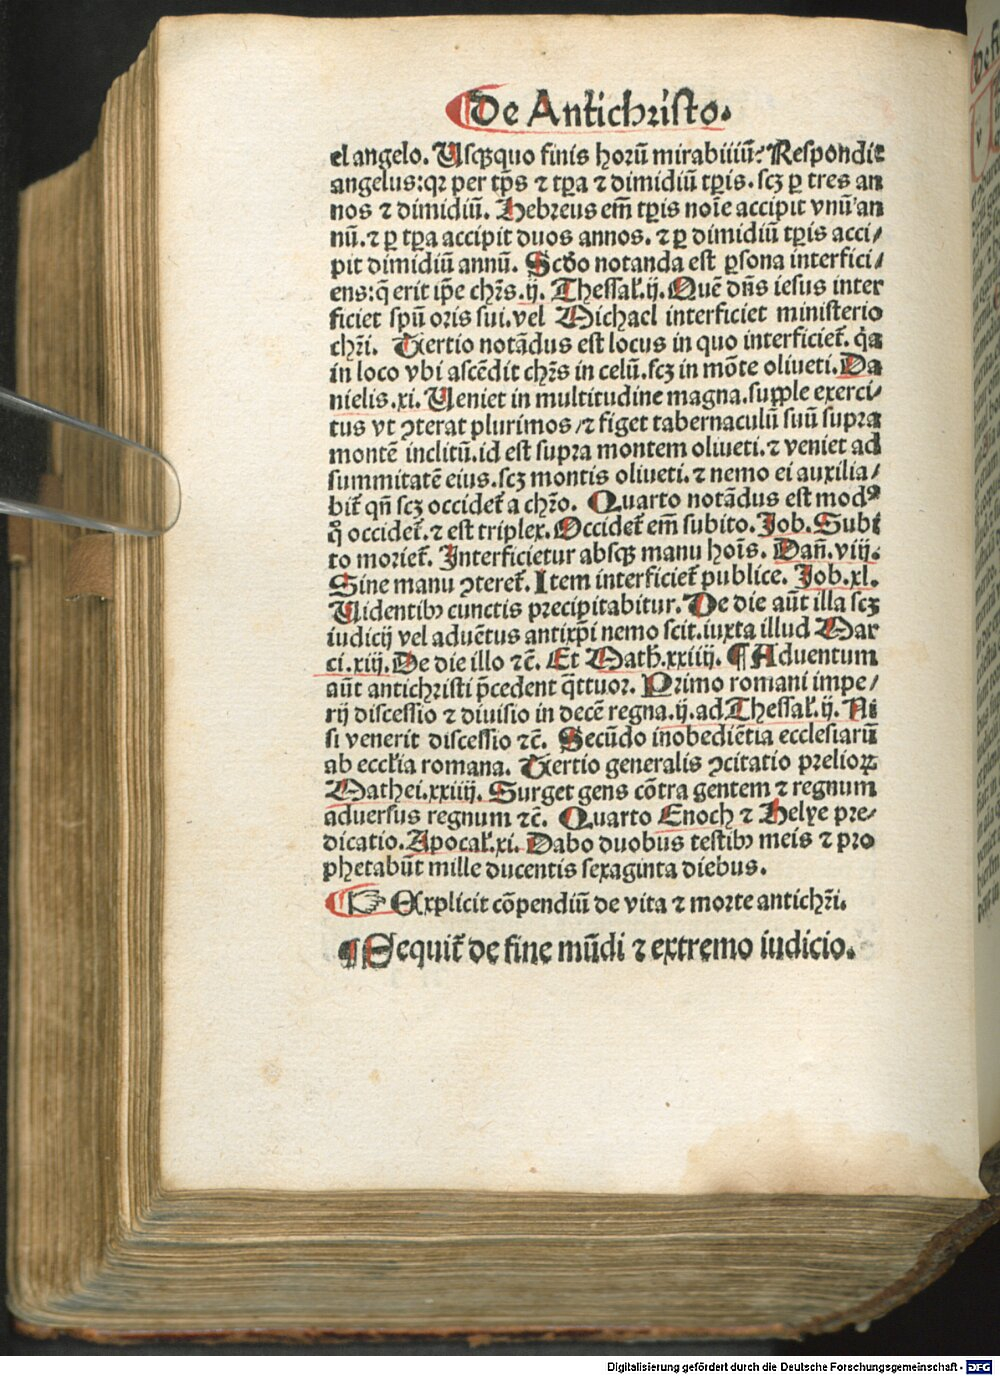 De Antichristo.
el angelo. Usqꝫquo finis horū mirabiliū? Respondit
angelus: qꝛ per tp̄s ⁊ tp̄a ⁊ dimidiū tp̄is. scꝫ ꝑ tres an
nos ⁊ dimidiū. Hebreus em̄ tp̄is noīe accipit vnū an
nū. ⁊ ꝑ tp̄a accipit duos annos. ⁊ ꝑ dimidiū tp̄is acci/
pit dimidiū annū. Scḋo notanda est ꝑsona interfici/
ens: q̄ erit ip̄e chr̄s. ij. Thessal̄. ij. Quē dn̄s iesus inter
ficiet spū oris sui. vel Michael interficiet ministerio
chr̄i. Tertio notādus est locus in quo interficiet̄. qꝛ
in loco vbi ascēdit chr̄s in celū. scꝫ in mōte oliueti. Da
nielis. xi. Ueniet in multitudine magna. supple exerci/
tus vt ꝯterat plurimos / ⁊ figet tabernaculū suū supra
montē inclitū. id est supra montem oliueti. ⁊ veniet ad
summitatē eius. scꝫ montis oliueti. ⁊ nemo ei auxilia/
bit̄ qn̄ scꝫ occidet̄ a chr̄o. Quarto notādus est modꝰ
q̊ occidet̄. ⁊ est triplex. Occidet̄ em̄ subito. Job. Subi
to moriet̄. Interficietur absqꝫ manu hoīs. Dan̄. viij.
Sine manu ꝯteret̄. Item interficiet̄ publice. Job. xl.
Uidentibꝫ cunctis precipitabitur. De die aūt illa scꝫ
iudicij vel aduētus antixp̄i nemo scit. iuxta illud Mar
ci. xiij. De die illo ⁊c̄. Et Math̄. xxiiij. ¶ Aduentum
aūt antichristi p̄cedent q̄ttuor. Primo romani impe/
rij discessio ⁊ diuisio in decē regna. ij. ad Thessal̄. ij. Ni
si venerit discessio ⁊c̄. Secūdo inobediētia ecclesiarū
ab eccl̄ia romana. Tertio generalis ꝯcitatio prelioꝝ
Mathei. xxiiij. Surget gens cōtra gentem ⁊ regnum
aduersus regnum ⁊c̄. Quarto Enoch ⁊ Helye pre/
dicatio. Apocal̄. xi. Dabo duobus testibꝫ meis ⁊ pro
phetabūt mille ducentis sexaginta diebus.
☞ Explicit cōpendiū de vita ⁊ morte antichr̄i.
¶ Sequit̄ de fine mūdi ⁊ extremo iudicio.
Digitalisierung gefördert durch die Deutsche Forschungsgemeinschaft - DFG